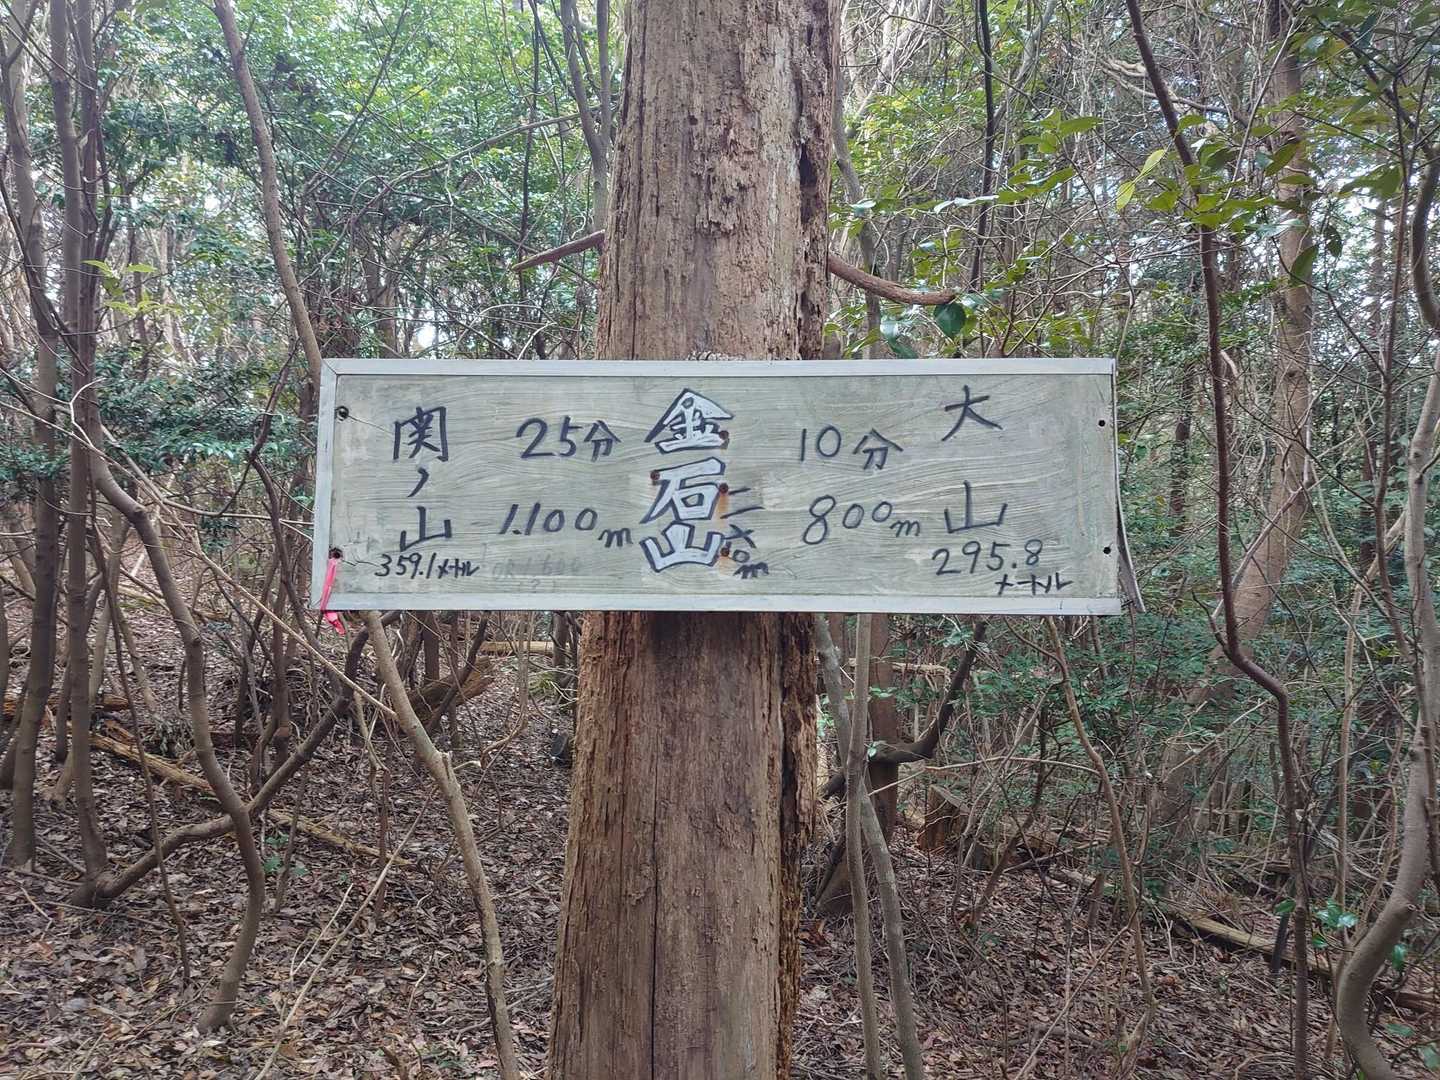 関ノ山
359.1メートル
25分
1.100m
金石山
二六〇m
10分
800m
大山
295.8
メートル